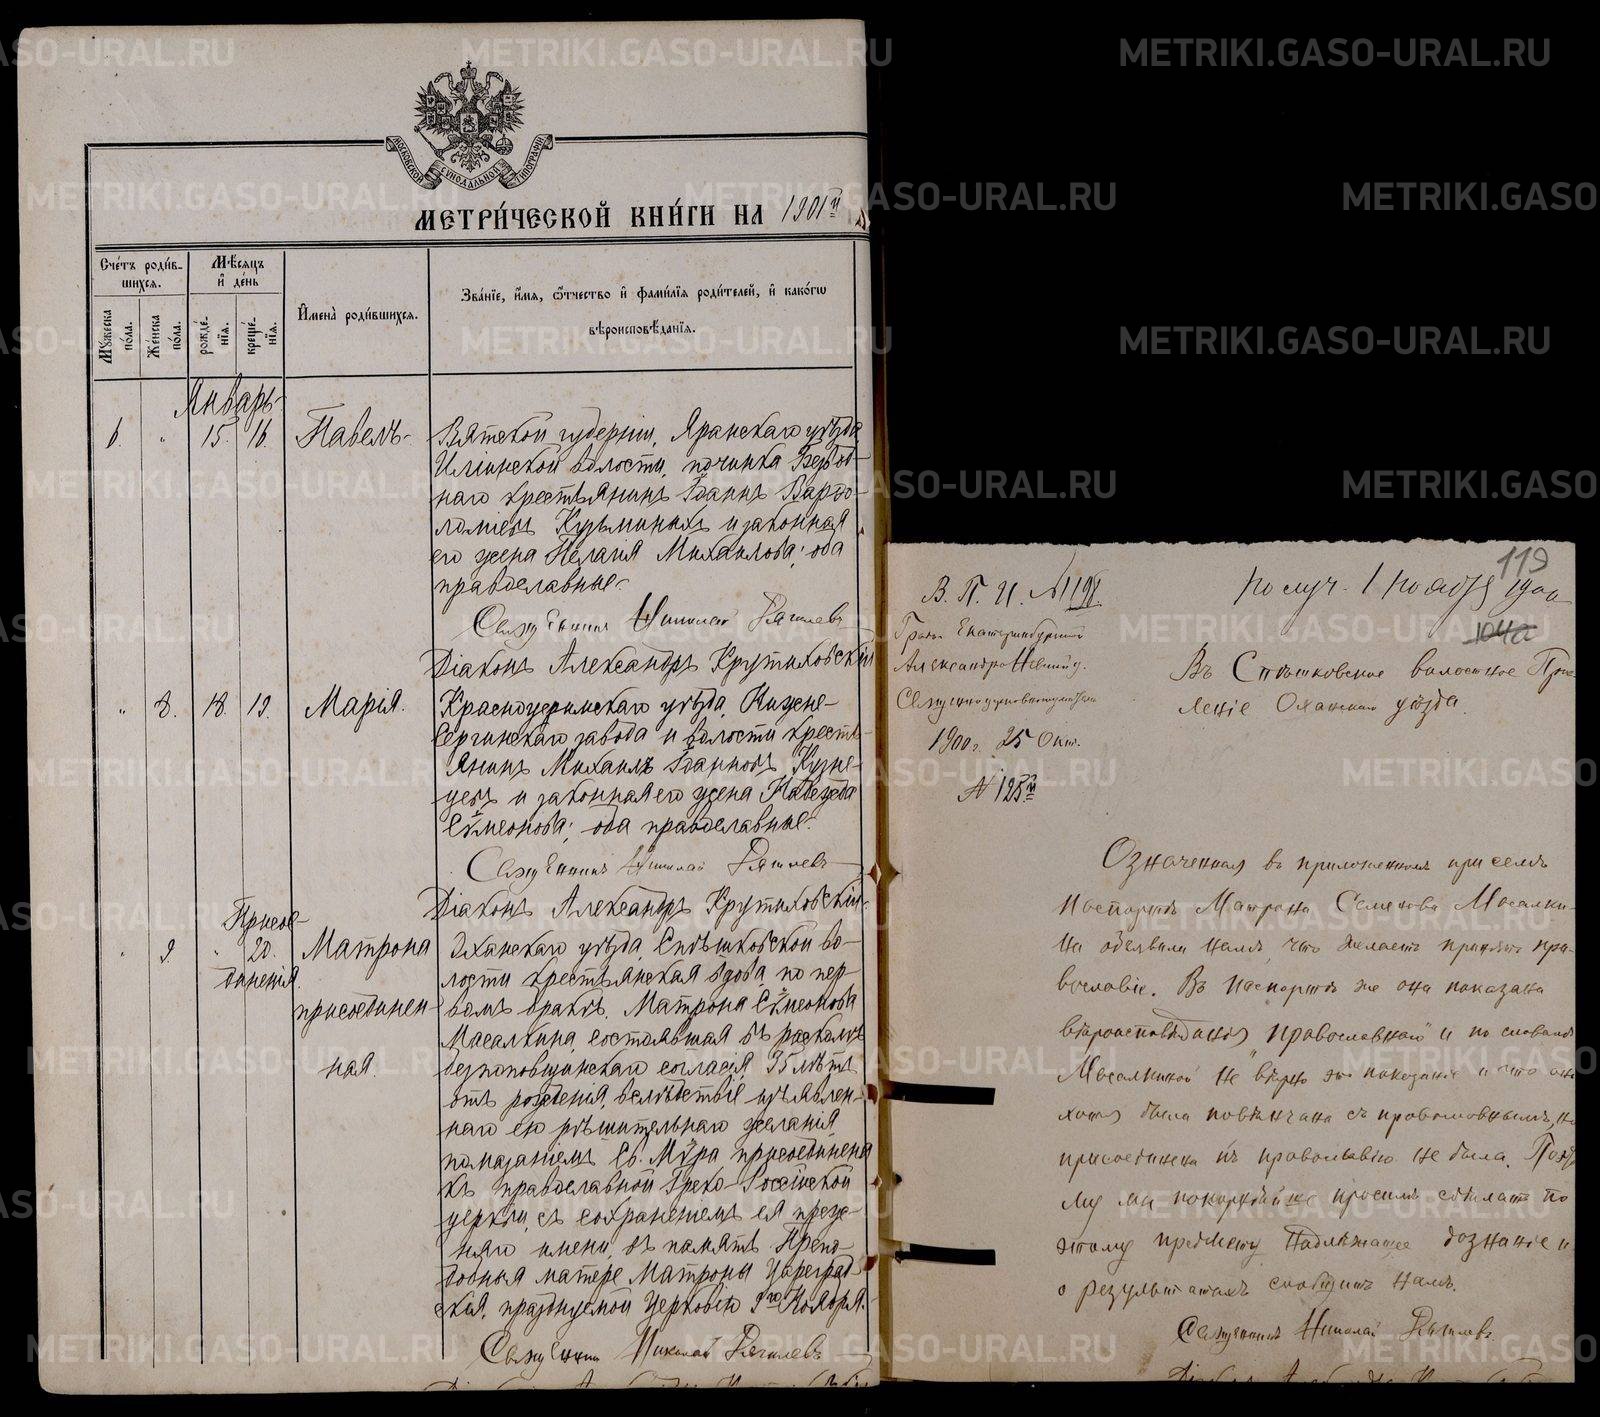 МОСКОВСКОЙ СѴНОДАЛЬНОЙ ТИПОГРАФІИ
МЕТРИ́ЧЕСКОЙ КНИ́ГИ НА 1901й
Сче́тъ роди́в-
шихся.
Мѣ́сяцъ
и҆ де́нь
Мꙋ́жеска
по́ла.
Же́нска
по́ла.
рожде́-
нїя.
креще́-
нїя.
И҆мена̀ роди́вшихся.
Зва́нїе, и҆́мя, ѻ҆́тчество и҆ фами́лїя роди́телей, и҆ како́гѡ
вѣроисповѣ́данїя.
Январь
6. " 15. 16. Павелъ. Вятской губерніи, Яранскаго уѣзда
Иліинской волости, починка Безвод-
наго крестьянинъ Іоаннъ Варѳо-
ломіевъ Кузьминыхъ и законная
его жена Пелагія Михаилова; оба
православные.
Священникъ Николай
Діаконъ Александръ Крутиховскій
" 8. 18. 19. Марія. Красноуфимскаго уѣзда, Нижне-
Сергинскаго завода и волости кресть-
янинъ Михаилъ Іоанновъ Кузне-
цевъ и законная его жена Надежда
Сѵмеонова; оба православные.
Священникъ Николай
Діаконъ Александръ Крутиховскій.
Присое-
" 9. " 20. Матрона Оханскаго уѣзда, Спѣшковской во-
диненія. лости крестьянская вдова, по пер-
присоединен- вомъ бракѣ, Матрона Сѵмеонова
Масалкина, состоявшая въ расколѣ
ная. безпоповщинскаго согласія, 35 лѣтъ
отъ рожденія, вслѣдствіе изъявлен-
наго ею рѣшительнаго желанія
помазаніемъ Св. Мѵра присоединена
къ православной Греко-Россійской
церкви, съ сохраненіемъ ея преж-
няго имени, въ память Препо-
добныя матере Матроны Цареград-
скія, празднуемой Церковію 9го Ноября.
Священникъ Николай
119
В. П. И. №1198.
Получ. 1 ноября 1900
104а
Екатеринбургской
Александро Невской
1900 г. 25 Окт.
№ 125й
Въ Спѣшковское волостное Прав
леніе Оханскаго уѣзда.
Означенная въ приложенномъ при семъ
паспортѣ Матрона Семенова Масалки-
на объявила намъ, что желаетъ принять пра-
вославіе. Въ паспортѣ же она показана
вѣроисповѣданія „православнаго" и по словамъ
Масалкиной не вѣрно это показаніе и что она
хотя была повѣнчана съ православнымъ, но
присоединена къ православію не была. Поэто
му мы покорнѣйше просимъ сдѣлать по
этому предмету надлежащее дознаніе и
о результатахъ сообщить намъ.
Священникъ Николай
METRIKI.GASO-URAL.RU